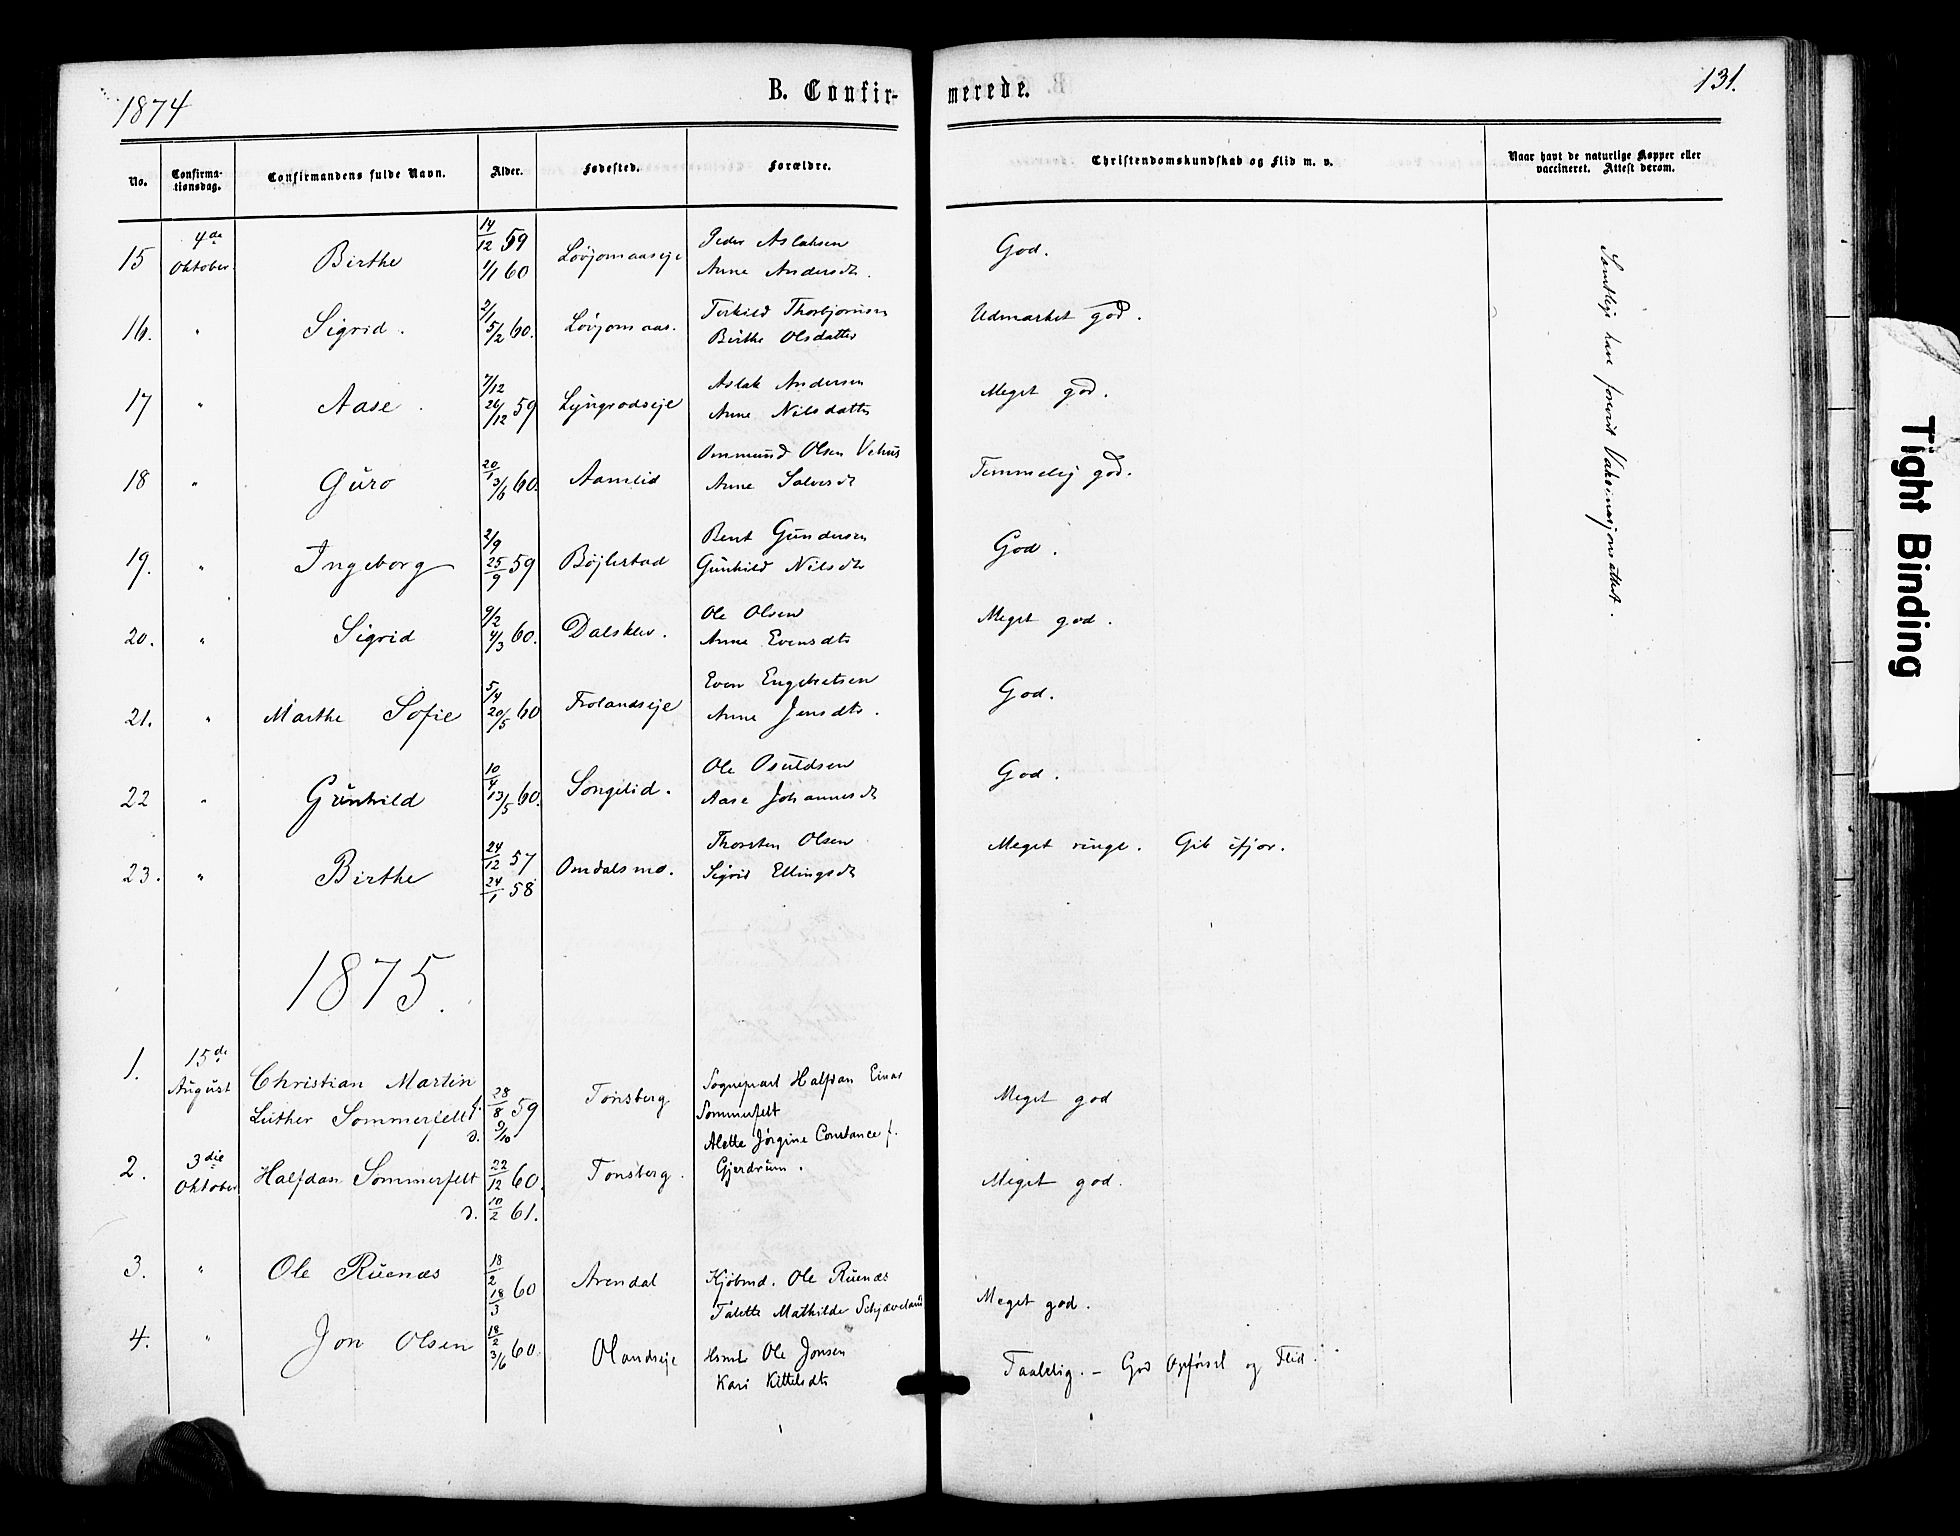 1874
B. Confir-
merede.
131.
No.
Confirma-
tionsdag.
Confirmandens fulde Navn.
Alder.
Fødested.
Forældre.
Christendomskundskab og Flid m. v.
Naar havt de naturlige Kopper eller
vaccineret. Attest derom.
15 4de Oktober. Birthe 14/12 59 1/1 60 Løvjomaaseje Peder Aslaksen Anne Andersdt. God.
16. " Sigrid. 2/1 5/2 60. Løvjomaas. Terkild Thorbjørnsen Birthe Olsdatter Udmærket god.
17 " Aase. 7/12 26/12 59 Lyngrodseje Aslak Andersen Anne Nilsdatter Meget god.
18 " Guro 20/1 3/6 60. Aamlid Ommund Olsen Vehus Anne Salvesdt Temmelig god.
19. " Ingeborg 2/9 25/9 59 Bøjlestad Bent Gundersen Gunhild Nilsdtr God.
20. " Sigrid 9/2 4/3 60. Dalsklev. Ole Olsen Anne Evensdtr Meget god.
21. " Marthe Sofie 5/4 20/5 60 Frolandseje Even Engebretsen Anne Jensdtr. God.
22 " Gunhild 10/4 13/5 60. Songelid. Ole Osuldsen Aase Johannesdt God.
23. " Birthe 24/12 57 24/1 58 Omdalsmo. Thorsten Olsen Sigrid Ellingsdt Meget ringe. Gik ifjor.
Samtlige have foreviist Vaksinasjonsattest.
1875.
1. 15de August Christian Martin Luther Sommerfelt f. 28/8 59 d. 9/10 Tønsberg Sogneprest Halfdan Einar Sommerfelt Alette Jørgine Constance f. Gjerdrum. Meget god
2. 3die Oktober Halfdan Sommerfelt 22/12 60. d. 10/2 61. Tønsberg. Meget god.
3. " Ole Ruenæs 18/2 18/3 60 Arendal Kjøbmd. Ole Ruenæs Talette Mathilde Schjæveland Meget god.
4. " Jon Olsen 18/2 3/6 60. Olandseje Hsmd Ole Jonsen Kari Kittelsdtr Taalelig. - God Opførsel og Flid.
Tight Binding